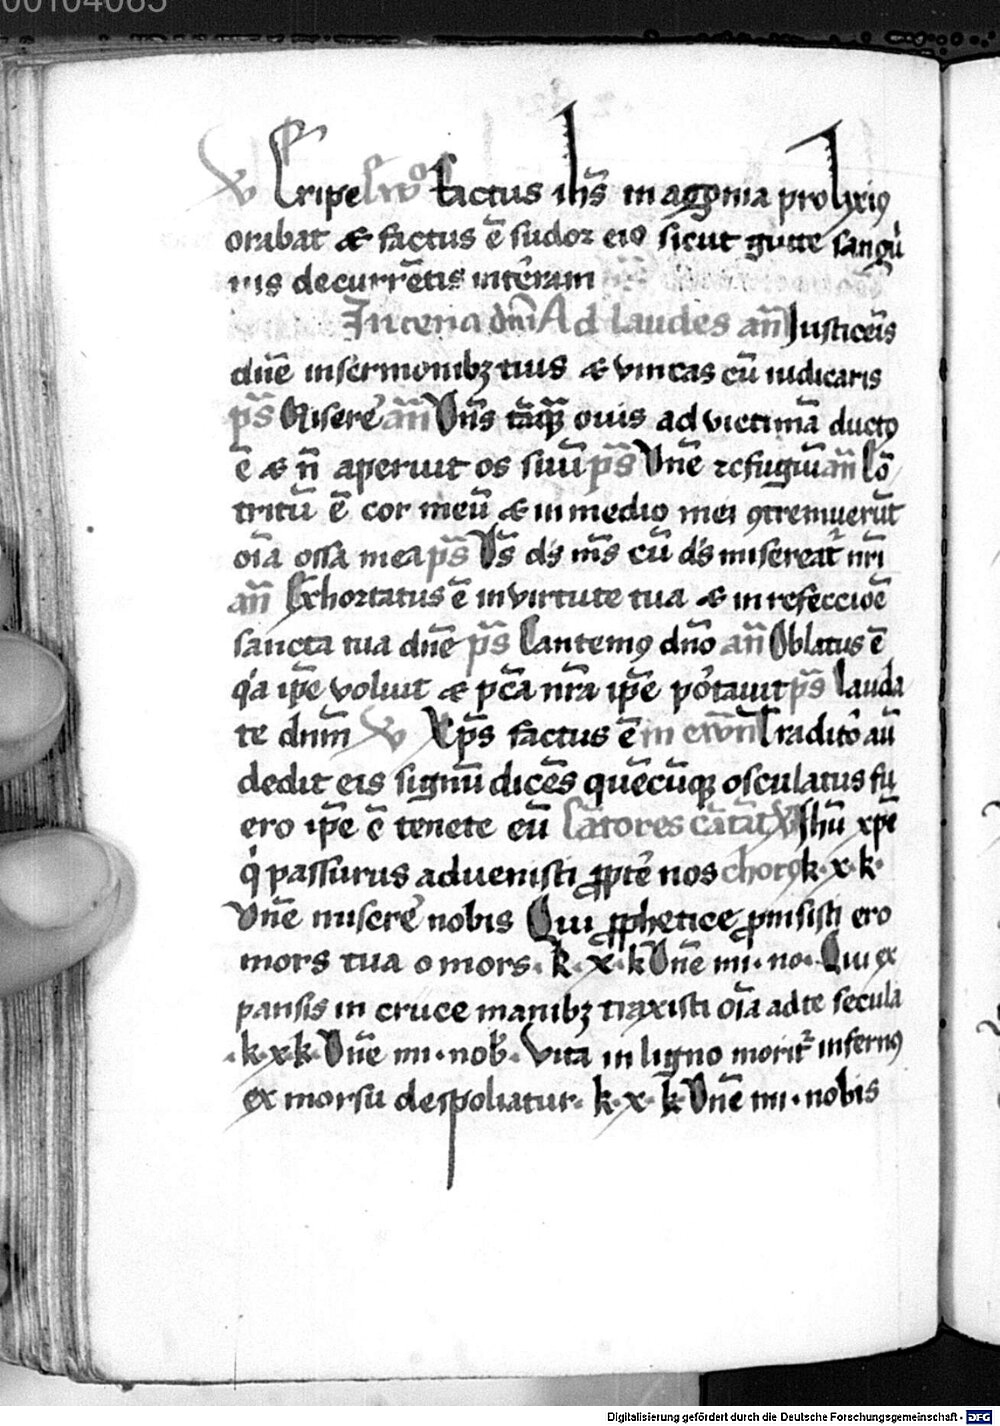 00104065
v̄ Eripe Ew̄o factus ih̄s in agonia prolixiꝰ
orabat ⁊ factus ē sudor eiꝰ sicut gutte sangu
inis decurrētis in terram
In cena dn̄i Ad laudes an̄ Justicēis
dn̄e in sermonibꝫ tuis ⁊ vincas cū iudicaris
ps̄ Misere an̄ Dn̄s tāqꝫ ovis ad victimā ductꝰ
ē ⁊ n̄ aperuit os suū ps̄ Dn̄e refugiū an̄ Cō
tritū ē cor meū ⁊ in medio mei ꝯtremuerūt
oīa ossa mea ps̄ Ds̄ ds̄ ms̄ cū ds̄ misereat᷑ nr̄i
an̄ Exhortatus ē in virtute tua ⁊ in refeccioē
sancta tua dn̄e ps̄ Cantemꝰ dn̄o an̄ Oblatus ē
q'a ip̄e voluit ⁊ pc̄a nr̄a ip̄e portavit ps̄ Lauda
te dn̄m v̄ Xp̄s factus ē in ewn̄ Traditor aū
dedit eis signū dicēs quēcūqꝫ osculatus fu
ero ip̄e ē tenete eū Cātores cātāt Jhū xp̄e
q' passurus advenisti ꝓpt' nos chorꝰ k·x·k·
Dn̄e misere nobis Qui ꝓphetice ꝓmisisti ero
mors tua o mors· k·x·k Dn̄e mi·no· Qui ex
pansis in cruce manibꝫ traxisti oīa ad te secula
·k·x·k· Dn̄e mi·nob· Vita in ligno morit᷑ infernꝰ
ex morsu despoliatur· k·x·k Dn̄e mi·nobis
Digitalisierung gefördert durch die Deutsche Forschungsgemeinschaft - DFG